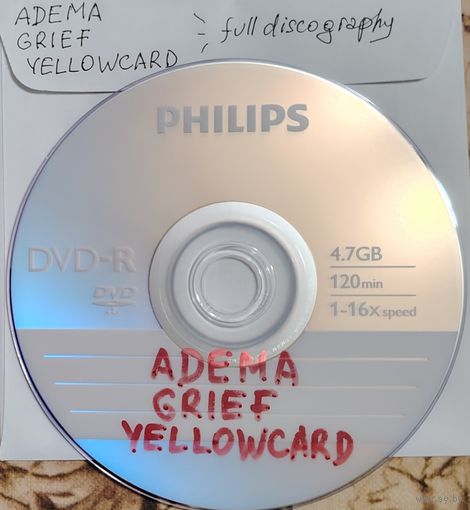 ADEMA
GRIEF
YELLOWCARD
full discography
PHILIPS
DVD-R
DVD
R
4.7GB
120min
1-16x speed
ADEMA
GRIEF
YELLOWCARD